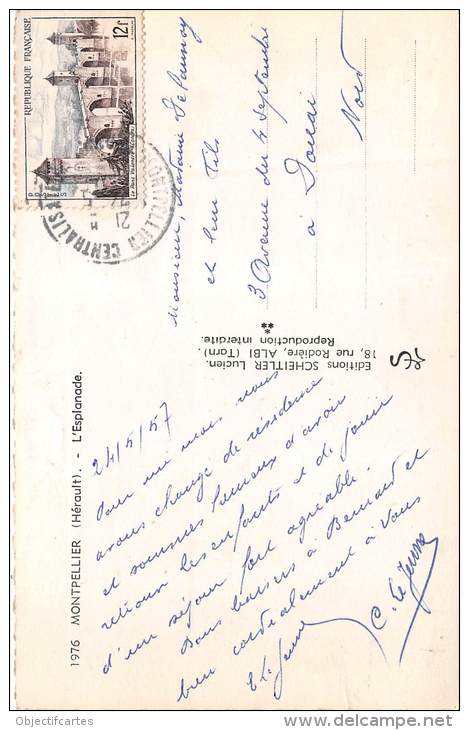 1976 MONTPELLIER (Hérault). - L'Esplanade.
24/5/57
Pour un mois nous
avons changé de résidence
et sommes heureux d'avoir
retrouvé les enfants et de jouir
d'un séjour fort agréable.
Bons baisers à Bernard et
bien cordialement à vous
C. Le Jeune
Editions SCHEITLER Lucien.
18, rue Rodière, ALBI (Tarn).
Reproduction interdite.
Monsieur, Madame Delaunoy
et leur fils
3 Avenue du 4 Septembre
à Douai
Nord
REPUBLIQUE FRANÇAISE
12f
POSTES
MONTPELLIER CENTRALISATEUR
21
Objectifcartes
www.delcampe.net